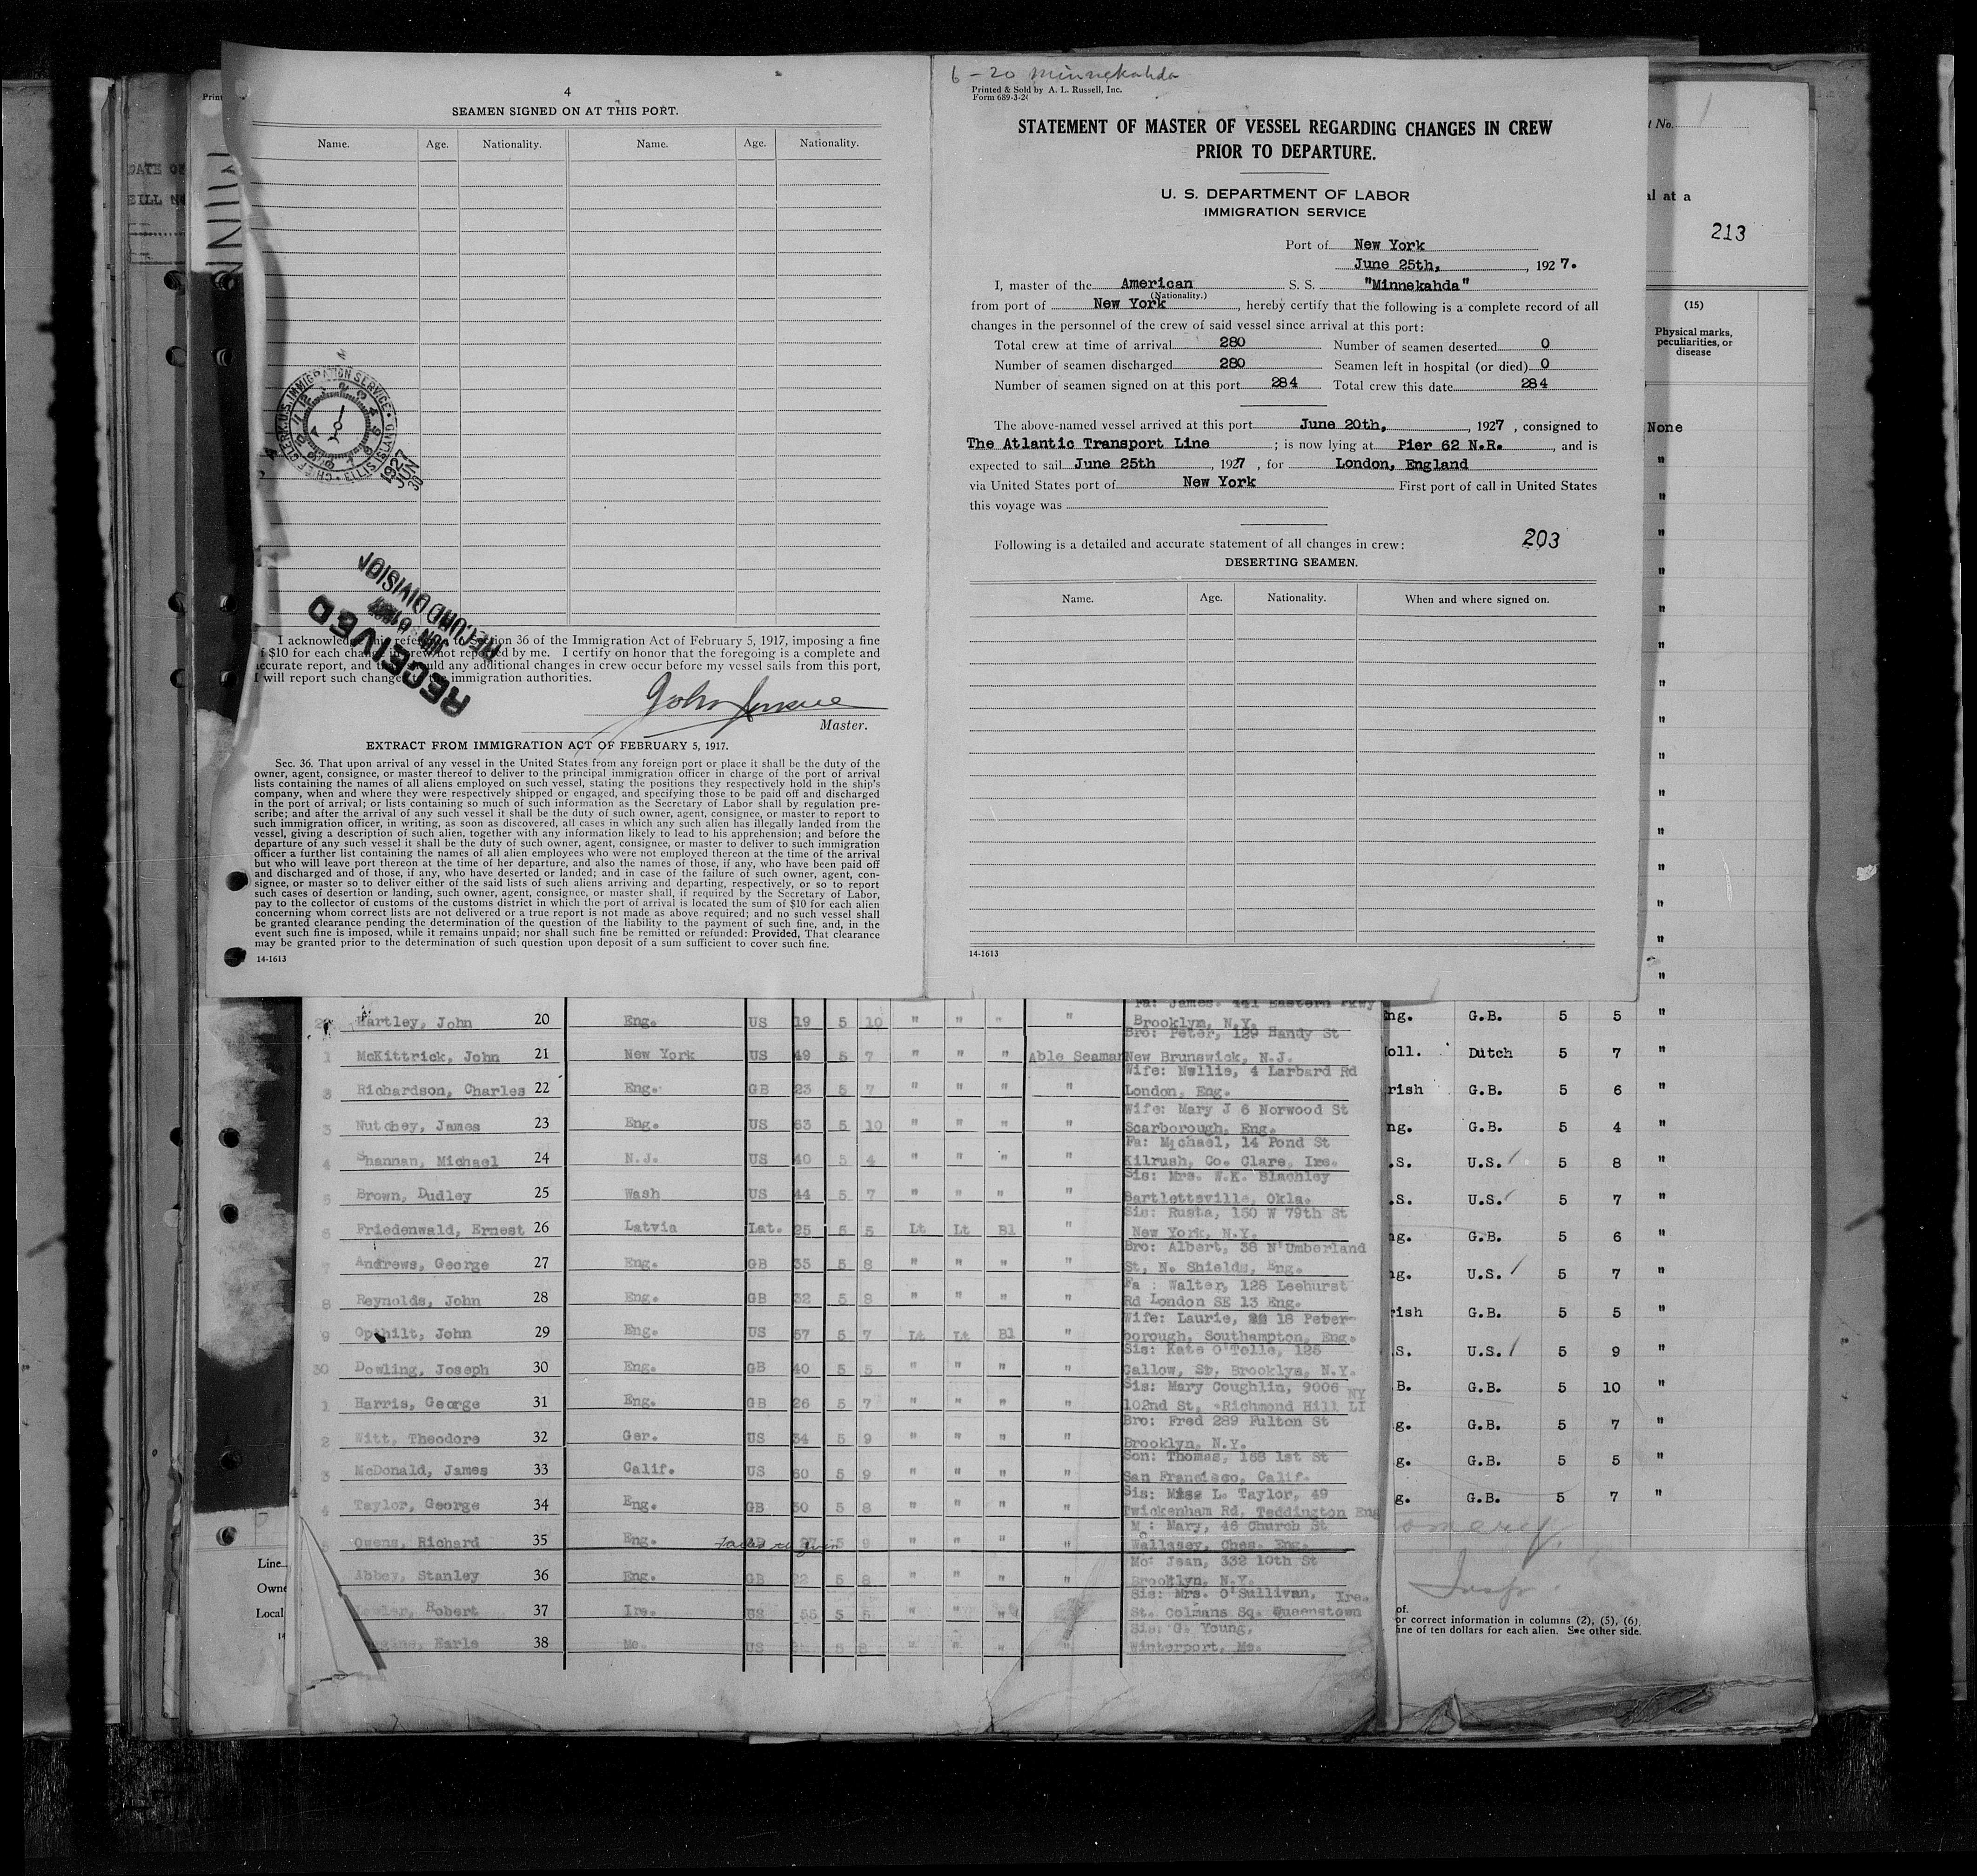 4
SEAMEN SIGNED ON AT THIS PORT.
Name. Age. Nationality. Name. Age. Nationality.
CHIEF CLERK U.S. IMMIGRATION SERVICE
ELLIS ISLAND
1927 JUN 30
RECEIVED
RECORD DIVISION
I acknowledge this reference to Section 36 of the Immigration Act of February 5, 1917, imposing a fine
of $10 for each change in crew not reported by me. I certify on honor that the foregoing is a complete and
accurate report, and that should any additional changes in crew occur before my vessel sails from this port,
I will report such changes immigration authorities.
John
Master.
EXTRACT FROM IMMIGRATION ACT OF FEBRUARY 5, 1917.
Sec. 36. That upon arrival of any vessel in the United States from any foreign port or place it shall be the duty of the
owner, agent, consignee, or master thereof to deliver to the principal immigration officer in charge of the port of arrival
lists containing the names of all aliens employed on such vessel, stating the positions they respectively hold in the ship's
company, when and where they were respectively shipped or engaged, and specifying those to be paid off and discharged
in the port of arrival; or lists containing so much of such information as the Secretary of Labor shall by regulation pre-
scribe; and after the arrival of any such vessel it shall be the duty of such owner, agent, consignee, or master to report to
such immigration officer, in writing, as soon as discovered, all cases in which any such alien has illegally landed from the
vessel, giving a description of such alien, together with any information likely to lead to his apprehension; and before the
departure of any such vessel it shall be the duty of such owner, agent, consignee, or master to deliver to such immigration
officer a further list containing the names of all alien employees who were not employed thereon at the time of the arrival
but who will leave port thereon at the time of her departure, and also the names of those, if any, who have been paid off
and discharged and of those, if any, who have deserted or landed; and in case of the failure of such owner, agent, con-
signee, or master so to deliver either of the said lists of such aliens arriving and departing, respectively, or so to report
such cases of desertion or landing, such owner, agent, consignee, or master shall, if required by the Secretary of Labor,
pay to the collector of customs of the customs district in which the port of arrival is located the sum of $10 for each alien
concerning whom correct lists are not delivered or a true report is not made as above required; and no such vessel shall
be granted clearance pending the determination of the question of the liability to the payment of such fine, and, in the
event such fine is imposed, while it remains unpaid; nor shall such fine be remitted or refunded: Provided, That clearance
may be granted prior to the determination of such question upon deposit of a sum sufficient to cover such fine.
14-1613
6 - 20 Minnekahda
Printed & Sold by A. L. Russell, Inc.
Form 689-3-2
STATEMENT OF MASTER OF VESSEL REGARDING CHANGES IN CREW
PRIOR TO DEPARTURE.
U. S. DEPARTMENT OF LABOR
IMMIGRATION SERVICE
Port of New York
June 25th, , 1927.
I, master of the American S. S. "Minnekahda"
(Nationality.)
from port of New York , hereby certify that the following is a complete record of all
changes in the personnel of the crew of said vessel since arrival at this port:
Total crew at time of arrival 280 Number of seamen deserted 0
Number of seamen discharged 280 Seamen left in hospital (or died) 0
Number of seamen signed on at this port 284 Total crew this date 284
The above-named vessel arrived at this port June 20th, , 1927 , consigned to
The Atlantic Transport Line ; is now lying at Pier 62 N.R. , and is
expected to sail June 25th , 1927 , for London, England
via United States port of New York First port of call in United States
this voyage was
Following is a detailed and accurate statement of all changes in crew: 203
DESERTING SEAMEN.
Name. Age. Nationality. When and where signed on.
14-1613
DATE OF
BILL NO
Print
MINN
t No.
al at a
213
(15)
Physical marks,
peculiarities, or
disease
None
Fa: James. 441 Eastern Pkwy
Hartley, John 20 Eng. US 19 5 10 " " " " Brooklyn, N.Y.
Bro: Peter, 129 Handy St
1 McKittrick, John 21 New York US 49 5 7 " " " Able Seaman New Brunswick, N.J.
Wife: Nellie, 4 Larbard Rd
2 Richardson, Charles 22 Eng. GB 23 5 7 " " " " London, Eng.
Wife: Mary J 6 Norwood St
3 Nutchey, James 23 Eng. US 63 5 10 " " " " Scarborough, Eng.
Fa: Michael, 14 Pond St
4 Shannan, Michael 24 N.J. US 40 5 4 " " " " Kilrush, Co. Clare, Ire.
Sis: Mrs. W.K. Blachley
5 Brown, Dudley 25 Wash US 44 5 7 " " " " Bartlettsville, Okla.
Sis: Rusta, 150 W 79th St
6 Friedenwald, Ernest 26 Latvia Lat. 25 5 5 Lt Lt Bl " New York, N.Y.
Bro: Albert, 38 N'Umberland
7 Andrews, George 27 Eng. GB 35 5 8 " " " " St, N. Shields, Eng.
Fa : Walter, 128 Leehurst
8 Reynolds, John 28 Eng. GB 32 5 8 " " " " Rd London SE 13 Eng.
Wife: Laurie, 18 Peter-
9 Opthilt, John 29 Eng. US 57 5 7 Lt Lt Bl " borough, Southampton, Eng.
Sis: Kate O'Telle, 125
30 Dowling, Joseph 30 Eng. GB 40 5 5 " " " " Gallow, St. Brooklyn, N.Y.
Sis: Mary Coughlin, 9006 NY
1 Harris, George 31 Eng. GB 26 5 7 " " " " 102nd St, Richmond Hill LI
Bro: Fred 289 Fulton St
2 Witt, Theodore 32 Ger. US 34 5 9 " " " " Brooklyn, N.Y.
Son: Thomas, 158 1st St
3 McDonald, James 33 Calif. US 60 5 9 " " " " San Francisco, Calif.
Sis: Miss L. Taylor, 49
4 Taylor, George 34 Eng. GB 30 5 8 " " " " Twickenham Rd, Teddington Eng
Mo: Mary, 46 Church St
5 Owens, Richard 35 Eng. Failed to join 5 9 " " " " Wallasey, Ches. Eng.
Mo: Jean, 332 10th St
Abbey, Stanley 36 Eng. GB 22 5 8 " " " " Brooklyn, N.Y.
Sis: Mrs. O'Sullivan, Ire.
Robert 37 Ire. US 5 " " " " St. Colmans Sq. Queenstown
Sis: G. Young,
Earle 38 Me. US 5 8 " " " " Winterport, Me.
ng. G.B. 5 5 "
oll. Dutch 5 7 "
rish G.B. 5 6 "
ng. G.B. 5 4 "
.S. U.S. 5 8 "
.S. U.S. 5 7 "
ng. G.B. 5 6 "
ng. U.S. 5 7 "
rish G.B. 5 5 "
S. U.S. 5 9 "
B. G.B. 5 10 "
g. G.B. 5 7 "
g. G.B. 5 5 "
g. G.B. 5 7 "
omery
Insp.
of.
or correct information in columns (2), (5), (6),
fine of ten dollars for each alien. See other side.
Line
Owne
Local
14